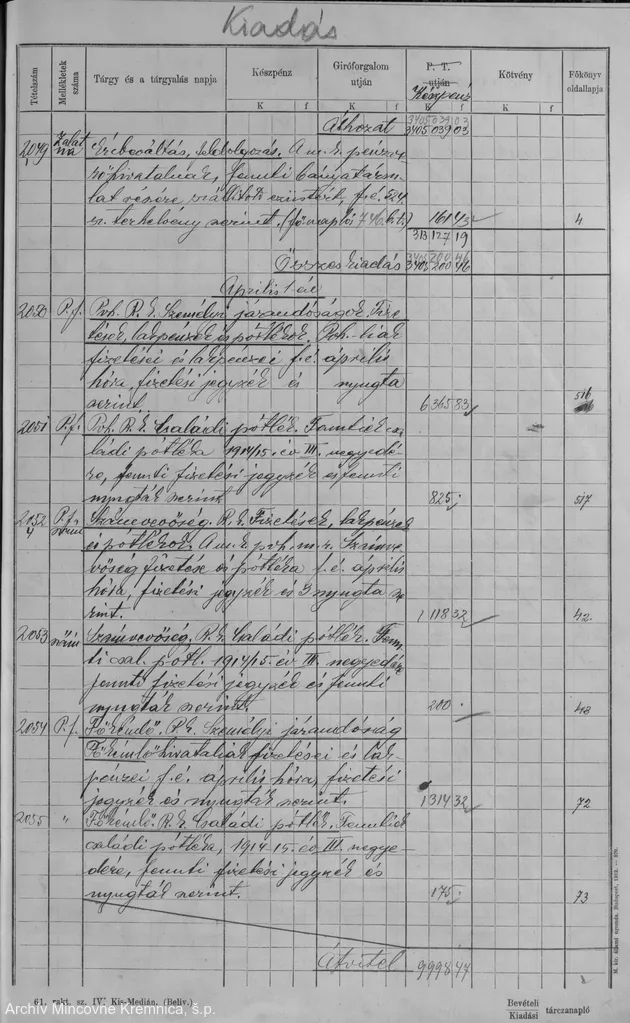 Kiadás
Tételszám
Mellékletek száma
Tárgy és a tárgyalás napja
Készpénz
Giróforgalom útján
P. T. útján
Készpénz
Kötvény
Főkönyv oldallapja
K f K f K f K f
Áthozat 3405039 03
3405039 03
2049 Zalatna Ércbeváltás, feldolgozás. A m. k. pénzverőhivatalnak, fennti bányatársulat részére, szállított ezüstért, f. é. 524
sz. terhelvény szerint. (főnapló 746. t.) 161 43 4
313127 19
Összes kiadás 3405200 46
3405200 46
Április 1 én
2050 P.f. Poh. R. k. Személyi járandóságok. Fize
tések, lakpénzek és pótlékok. Poh. tiak
fizetései és lakpénzei f. é. április
hóra, fizetési jegyzék és nyugta
szerint. 6365 83
2051 P.f. Poh. R. k. Családi pótlék. Fenntiek csa
ládi pótléka 1914/15. év III. negyedé
re, fennti fizetési jegyzék és fennti
nyugták szerint 825 517
2052 P.f. Számvevőség. R. k. Fizetések, lakpénzek
és pótlékok. A m. k. poh. m. r. Számve
vőség fizetése és pótléka f. é. április
hóra, fizetési jegyzék és 3 nyugta sze
rint. 1118 32 42.
2053 Számvevőség. R. k. Családi pótlék. Fenn
ti csal. pótl. 1914/15. év III. negyedére
fennti fizetési jegyzék és fennti
nyugták szerint 200 43
2054 P.f. Főkémlő. R. k. Személyi járandóság
Főkémlőhivataliak fizetései és lak
pénzei f. é. április hóra, fizetési
jegyzék és nyugták szerint. 1314 32 72
2055 " Főkémlő. R. k. Családi pótlék. Fenntiek
családi pótléka, 1914-15. év III. negye
dére, fennti fizetési jegyzék és
nyugták szerint. 175 73
Átvitel 9998 47
61. rakt. sz. IV. Kis-Medián. (Beliv.)
Bevételi
Kiadási tárczanapló
Archív Mincovne Kremnica, š.p.